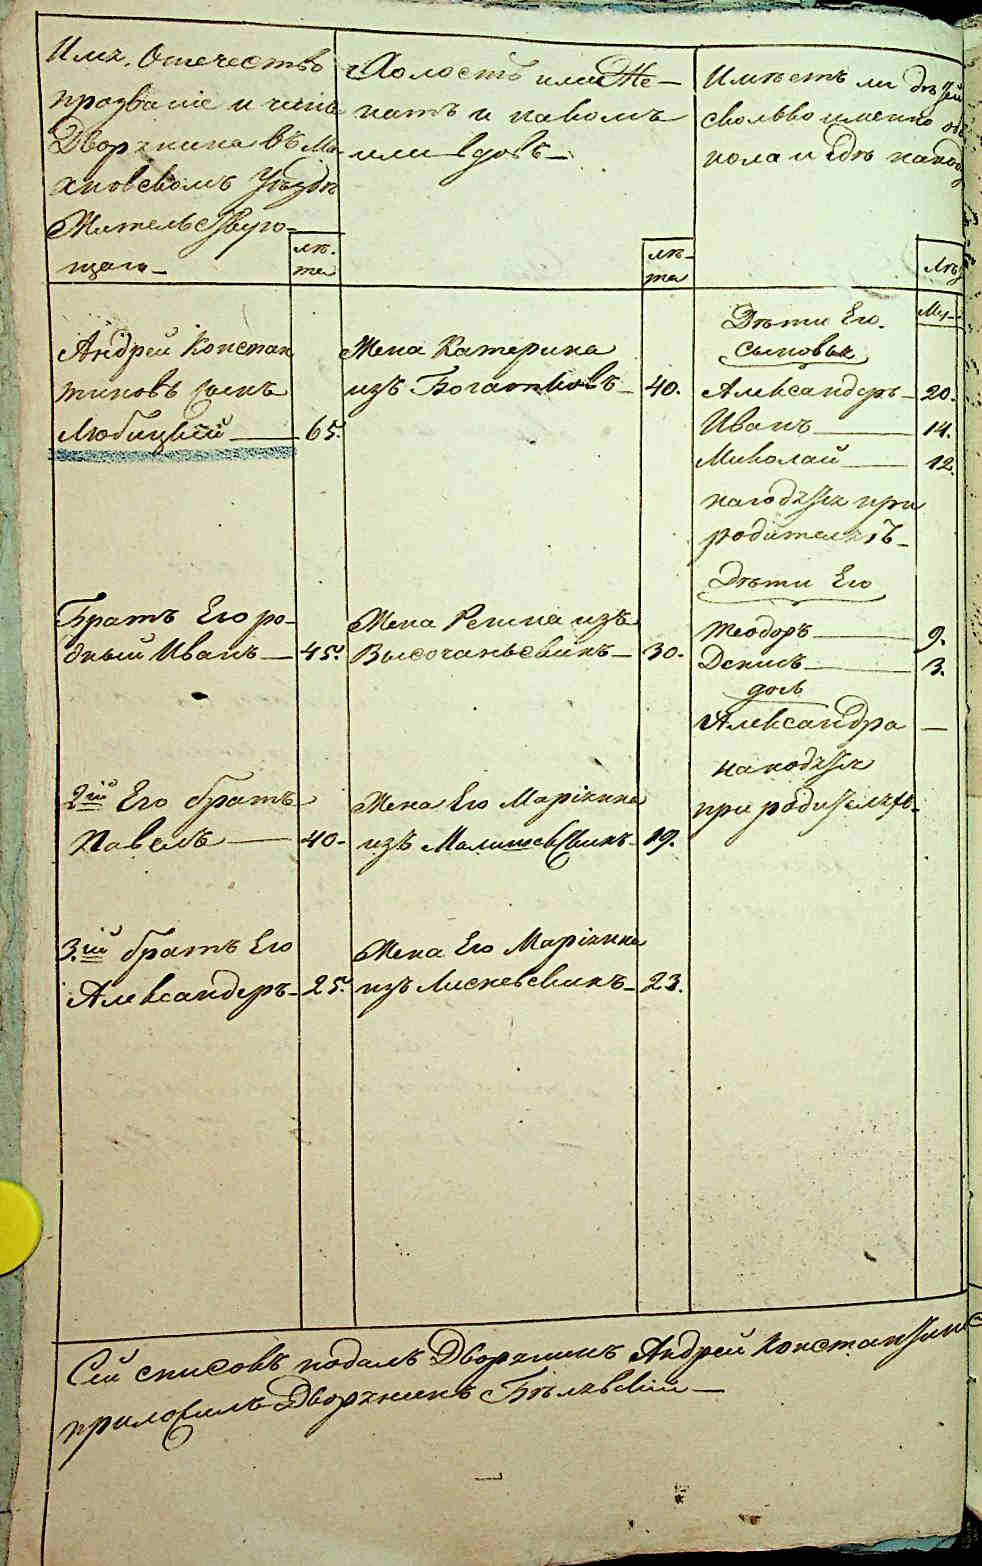 Имя, Отечество
прозваніе и чинъ
Дворянина въ Ма-
хновскомъ Уѣздѣ
Жительствую-
щаго
лѣ-
та
Холостъ или Же-
натъ и накомъ
или вдовъ
лѣ-
та
Имѣетъ ли дѣтей
сколько именно обѣ
пола и гдѣ наход
Лѣт
Му-
Андрей Констан
тиновъ сынъ
Любицкій 65.
Жена Катерина
изъ Богатковъ 40.
Дѣти Его
сыновья
Александеръ 20.
Иванъ 14.
Миколай 12.
находятся при
родителяхъ
Братъ Его ро-
дный Иванъ 45.
Жена Регина изъ
Височаньскихъ 30.
Дѣти Его
Теодоръ 9.
Денисъ 3.
дочь
Александра —
находятся
при родителяхъ
2ій Его братъ
Павелъ 40.
Жена Его Маріянна
изъ Малишевскихъ 19.
3.ій братъ Его
Александеръ 25.
Жена Его Маріянна
изъ Лисневскихъ 23.
Сей списокъ подалъ Дворянинъ Андрей Константинъ
приложилъ Дворянинъ Бѣлявскій